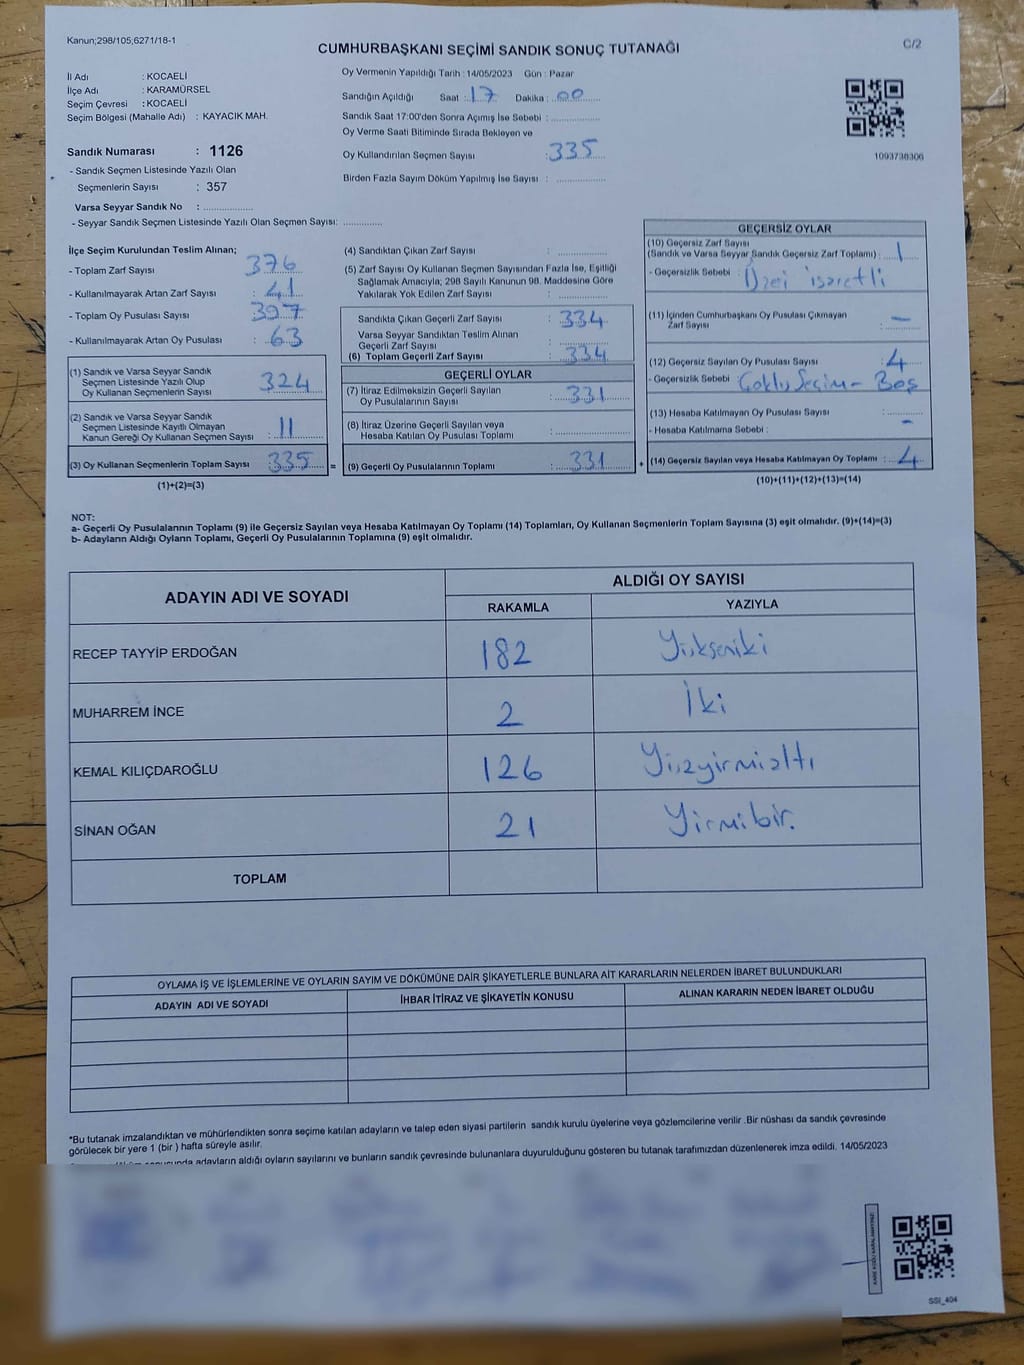 Kanun;298/105,6271/18-1
CUMHURBAŞKANI SEÇİMİ SANDIK SONUÇ TUTANAĞI
C/2
İl Adı : KOCAELİ
İlçe Adı : KARAMÜRSEL
Seçim Çevresi : KOCAELİ
Seçim Bölgesi (Mahalle Adı) : KAYACIK MAH.
Sandık Numarası : 1126
- Sandık Seçmen Listesinde Yazılı Olan
Seçmenlerin Sayısı : 357
Varsa Seyyar Sandık No : ..............
- Seyyar Sandık Seçmen Listesinde Yazılı Olan Seçmen Sayısı: ..............
Oy Vermenin Yapıldığı Tarih : 14/05/2023 Gün : Pazar
Sandığın Açıldığı Saat : 17 Dakika : 00
Sandık Saat 17:00'den Sonra Açımış İse Sebebi : ..............
Oy Verme Saati Bitiminde Sırada Bekleyen ve
Oy Kullandırılan Seçmen Sayısı : 335
Birden Fazla Sayım Döküm Yapılmış İse Sayısı : ..............
1093738306
İlçe Seçim Kurulundan Teslim Alınan;
- Toplam Zarf Sayısı : 376
- Kullanılmayarak Artan Zarf Sayısı : 41
- Toplam Oy Pusulası Sayısı : 397
- Kullanılmayarak Artan Oy Pusulası : 63
(1) Sandık ve Varsa Seyyar Sandık
Seçmen Listesinde Yazılı Olup
Oy Kullanan Seçmenlerin Sayısı : 324
(2) Sandık ve Varsa Seyyar Sandık
Seçmen Listesinde Kayıtlı Olmayan
Kanun Gereği Oy Kullanan Seçmen Sayısı : 11
(3) Oy Kullanan Seçmenlerin Toplam Sayısı : 335 =
(1)+(2)=(3)
(4) Sandıktan Çıkan Zarf Sayısı : ..............
(5) Zarf Sayısı Oy Kullanan Seçmen Sayısından Fazla İse, Eşitliği
Sağlamak Amacıyla; 298 Sayılı Kanunun 98. Maddesine Göre
Yakılarak Yok Edilen Zarf Sayısı : ..............
Sandıkta Çıkan Geçerli Zarf Sayısı : 334
Varsa Seyyar Sandıktan Teslim Alınan
Geçerli Zarf Sayısı : ..............
(6) Toplam Geçerli Zarf Sayısı : 334
GEÇERLİ OYLAR
(7) İtiraz Edilmeksizin Geçerli Sayılan
Oy Pusulalarının Sayısı : 331
(8) İtiraz Üzerine Geçerli Sayılan veya
Hesaba Katılan Oy Pusulası Toplamı : ..............
(9) Geçerli Oy Pusulalarının Toplamı : 331 +
GEÇERSİZ OYLAR
(10) Geçersiz Zarf Sayısı
(Sandık ve Varsa Seyyar Sandık Geçersiz Zarf Toplamı) : 1
- Geçersizlik Sebebi : Üzeri işaretli
(11) İçinden Cumhurbaşkanı Oy Pusulası Çıkmayan
Zarf Sayısı : -
(12) Geçersiz Sayılan Oy Pusulası Sayısı : 4
- Geçersizlik Sebebi : Çoklu Seçim - Boş
(13) Hesaba Katılmayan Oy Pusulası Sayısı : ..............
- Hesaba Katılmama Sebebi : -
(14) Geçersiz Sayılan veya Hesaba Katılmayan Oy Toplamı : 4
(10)+(11)+(12)+(13)=(14)
NOT:
a- Geçerli Oy Pusulalarının Toplamı (9) ile Geçersiz Sayılan veya Hesaba Katılmayan Oy Toplamı (14) Toplamları, Oy Kullanan Seçmenlerin Toplam Sayısına (3) eşit olmalıdır. (9)+(14)=(3)
b- Adayların Aldığı Oyların Toplamı, Geçerli Oy Pusulalarının Toplamına (9) eşit olmalıdır.
ADAYIN ADI VE SOYADI
ALDIĞI OY SAYISI
RAKAMLA YAZIYLA
RECEP TAYYİP ERDOĞAN 182 Yükseniki
MUHARREM İNCE 2 İki
KEMAL KILIÇDAROĞLU 126 Yüzyirmialtı
SİNAN OĞAN 21 Yirmibir.
TOPLAM
OYLAMA İŞ VE İŞLEMLERİNE VE OYLARIN SAYIM VE DÖKÜMÜNE DAİR ŞİKAYETLERLE BUNLARA AİT KARARLARIN NELERDEN İBARET BULUNDUKLARI
ADAYIN ADI VE SOYADI İHBAR İTİRAZ VE ŞİKAYETİN KONUSU ALINAN KARARIN NEDEN İBARET OLDUĞU
*Bu tutanak imzalandıktan ve mühürlendikten sonra seçime katılan adayların ve talep eden siyasi partilerin sandık kurulu üyelerine veya gözlemcilerine verilir .Bir nüshası da sandık çevresinde
görülecek bir yere 1 (bir ) hafta süreyle asılır.
adayların aldığı oyların sayılarını ve bunların sandık çevresinde bulunanlara duyurulduğunu gösteren bu tutanak tarafımızdan düzenlenerek imza edildi. 14/05/2023
KARE KODU KARALAMAYINIZ!
SSI_404